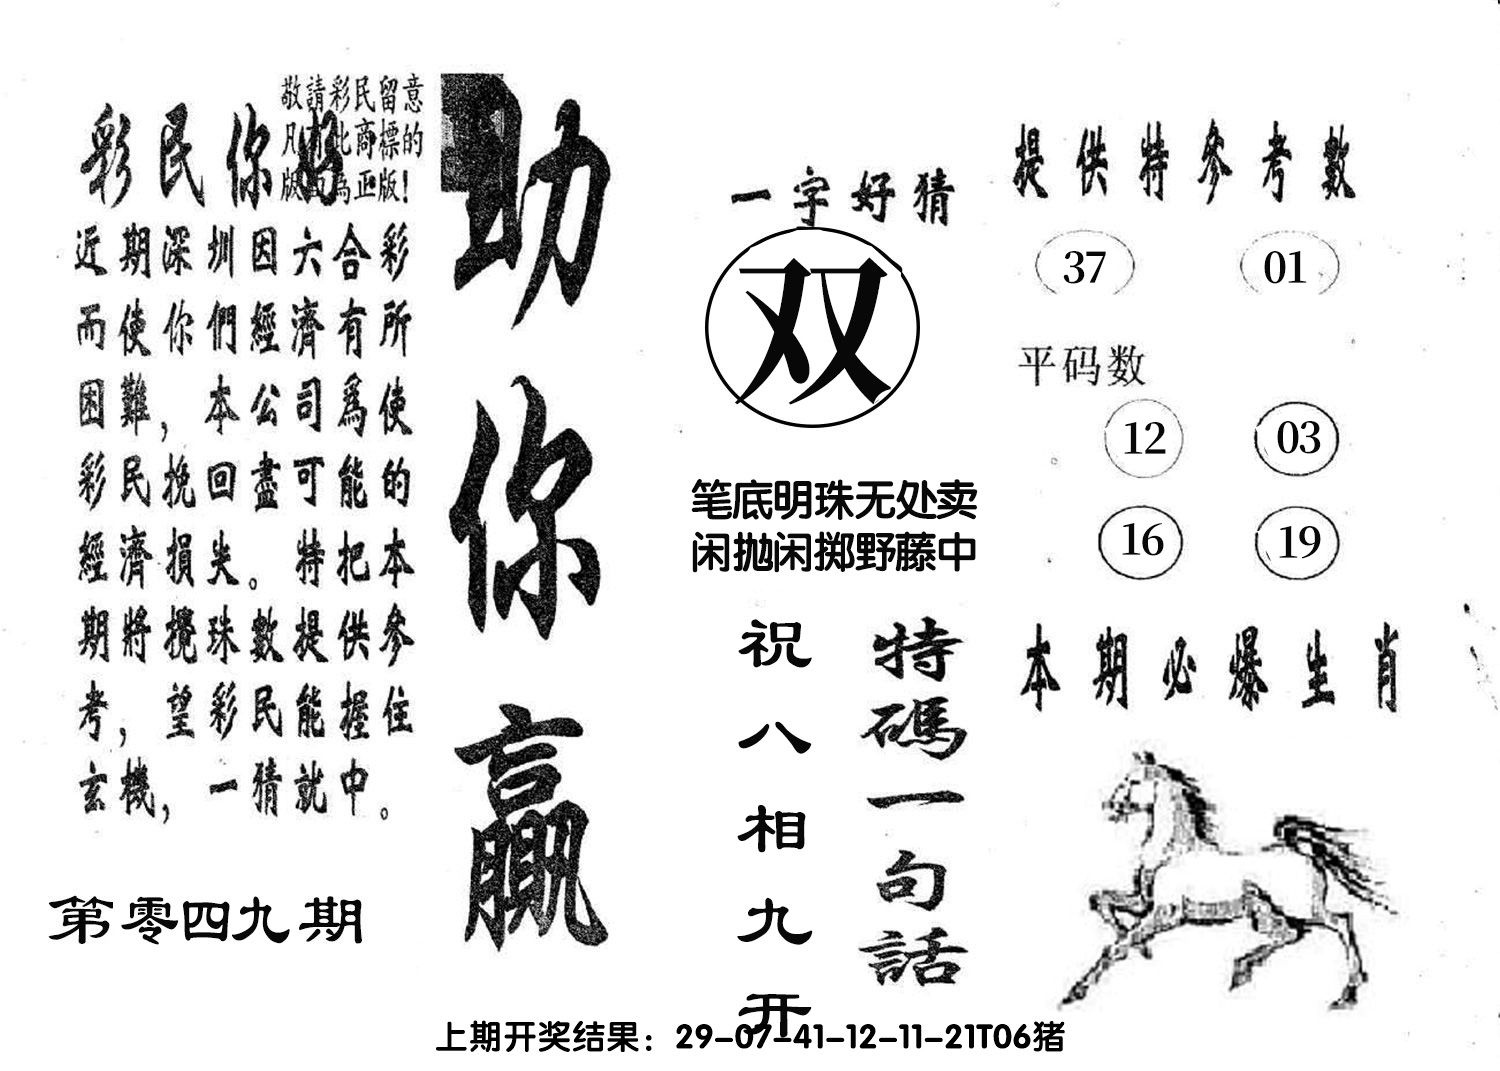 敬請彩民留意
凡有此商標的
版面為正版！
彩民你好
近期深圳因六合彩
而使你們經濟有所
困難，本公司爲使
彩民挽回盡可能的
經濟損失。特把本
期將攪珠數提供參
考，望彩民能握住
玄機，一猜就中。
第零四九期
助你贏
一字好猜
双
笔底明珠无处卖
闲抛闲掷野藤中
特碼一句話
祝八相九开
提供特參考數
37 01
平码数
12 03
16 19
本期必爆生肖
上期开奖结果：29-07-41-12-11-21T06猪